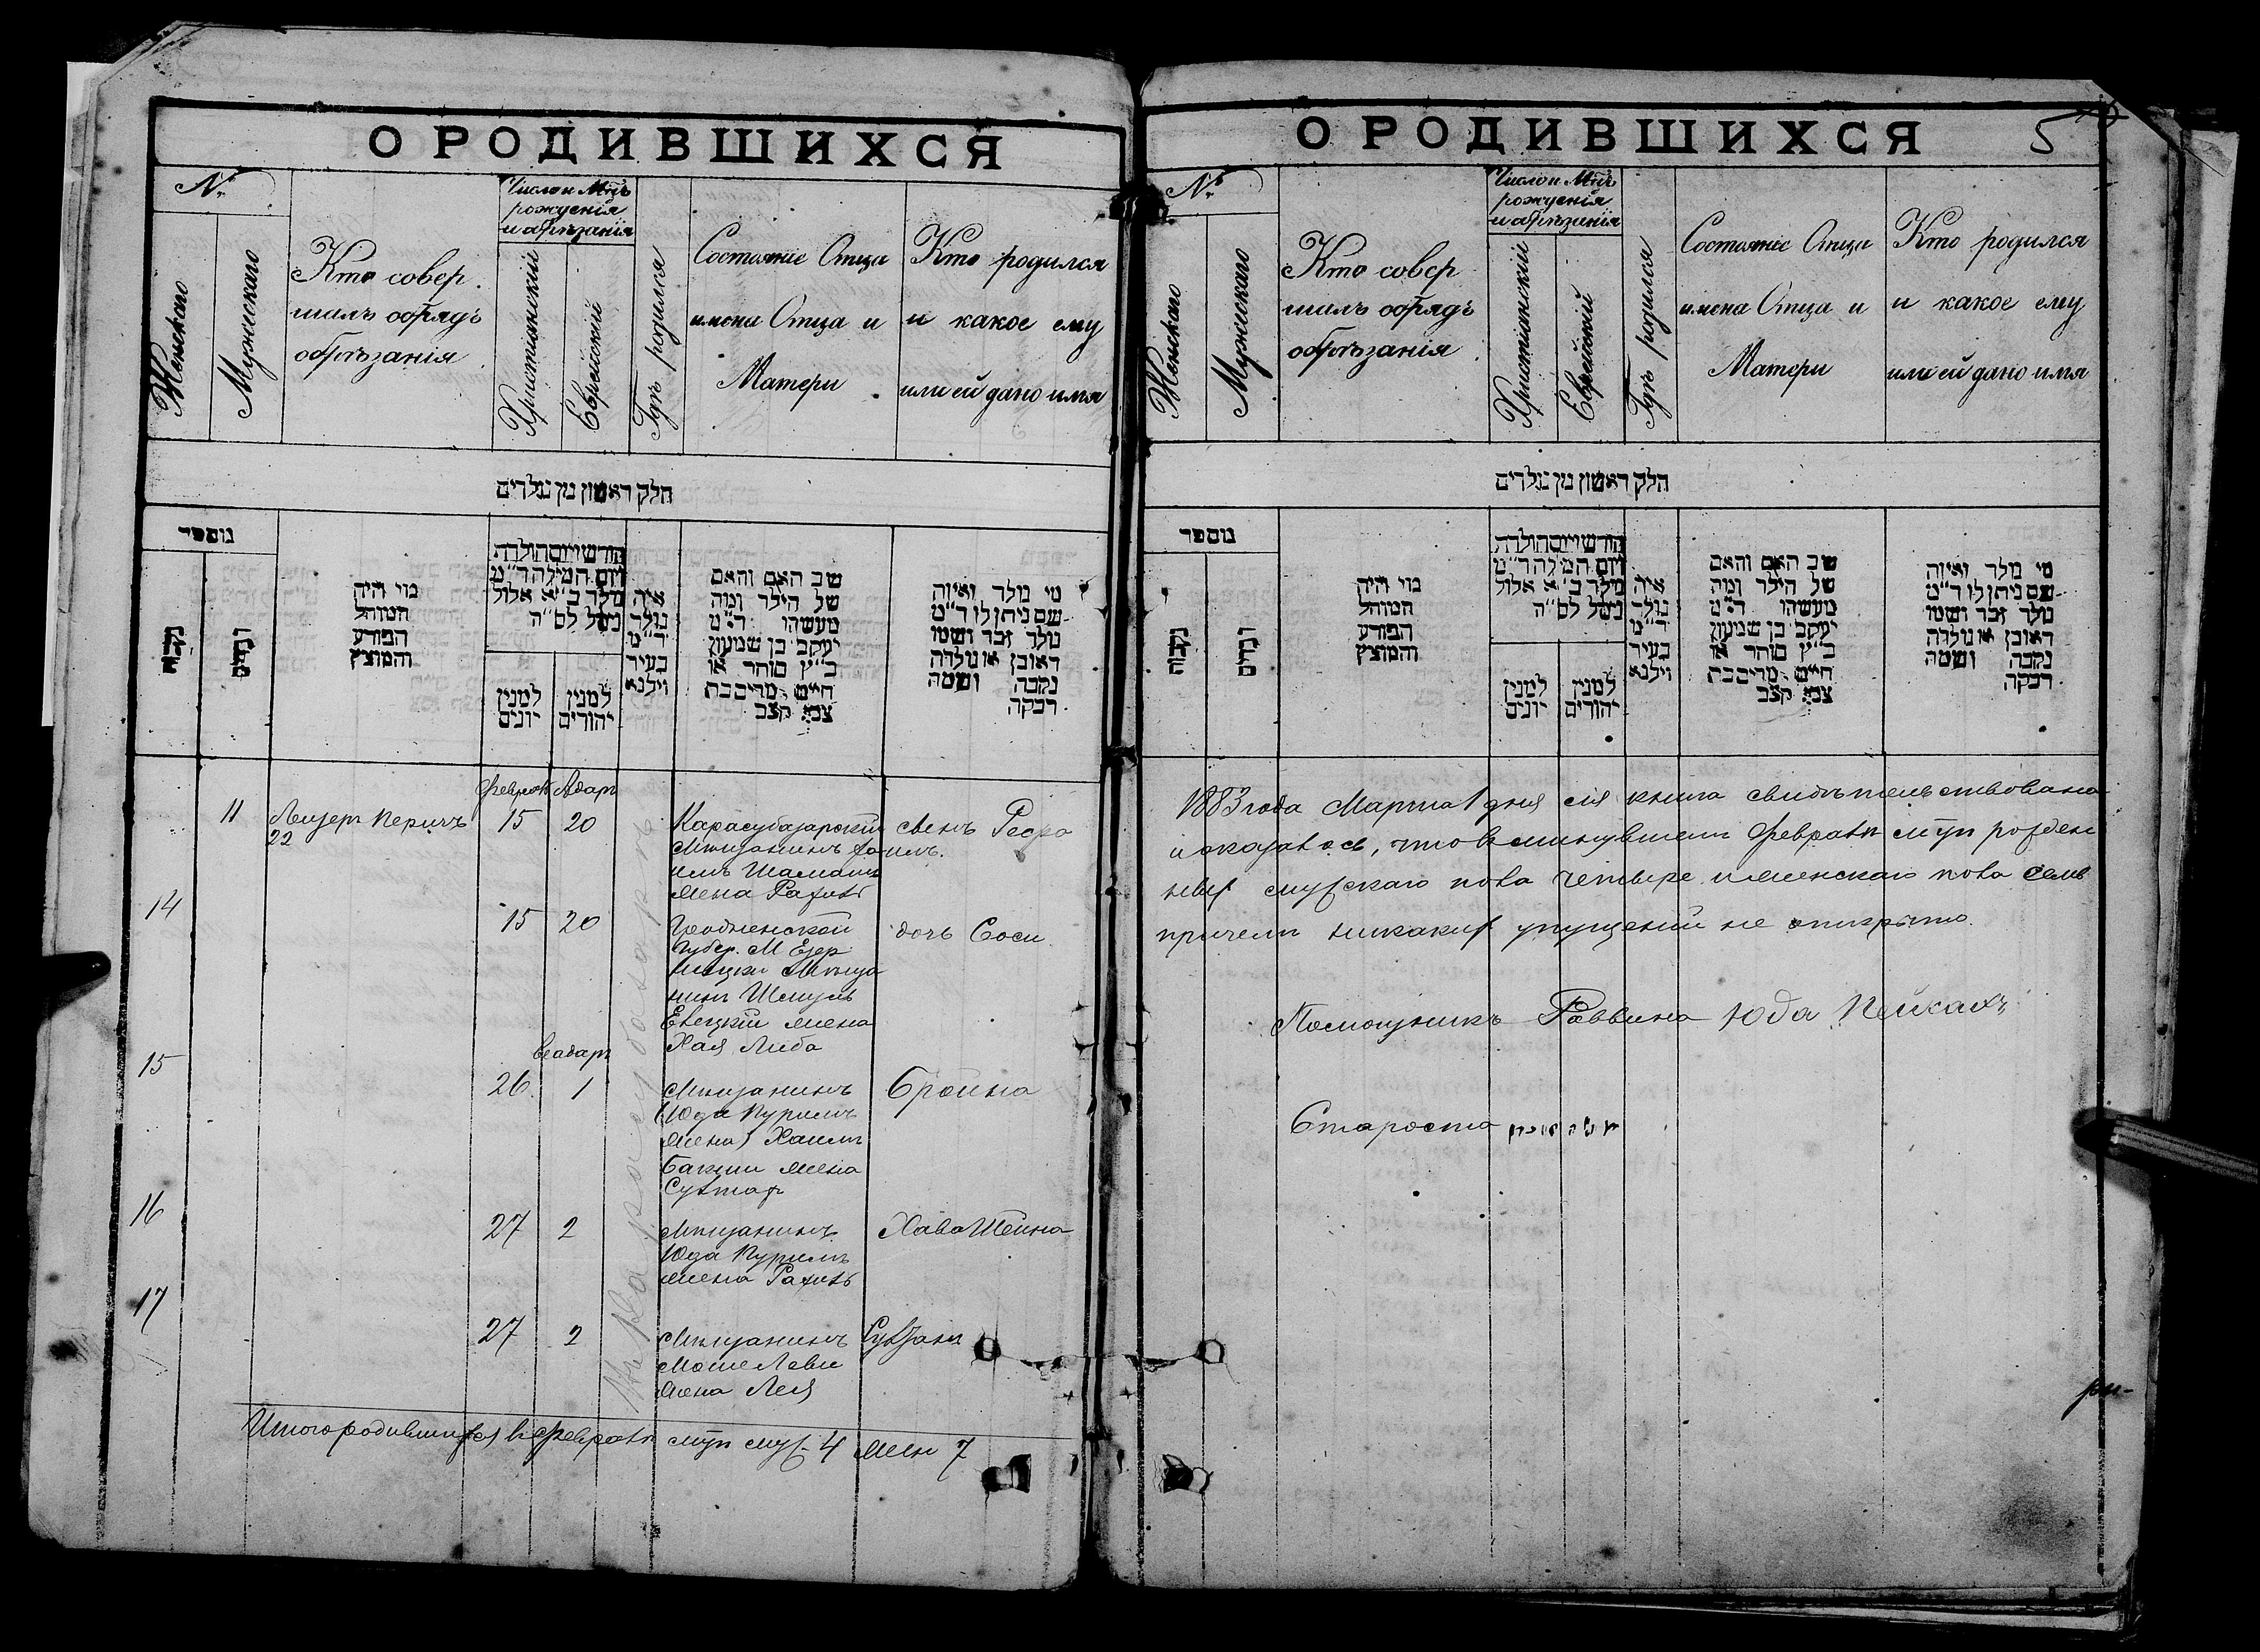 О РОДИВШИХСЯ
№
Женскаго
Мужскаго
Кто совер
шилъ обрядъ
обрѣзанія
Число и Мѣць
рожденія
и обрѣзанія
Христіанскій
Еврейскій
Гдѣ родился
Состояніе Отца
имена Отца и
Матери
Кто родился
и какое ему
или ей дано имя
חלק ראשון מן נולדים
נומפר
נקבות
זכרים
מוי היה
המוהל
הפורע
והמוצץ
חודש ויום הולדת
ויום המילה ד״מ
נולד ב״א אלול
נימל לס״ה
למנין
יונים
למנין
יהודים
איה
נולד
ד״מ
בעיר
וילנא
שם האב והאם
של הילד ומה
מעשהו ד״מ
יעקב בן שמעון
כ״ץ סוחר או
חיים מרים בת
צבי קצב
מי נולד ואיזה
שם ניתן לו ד״מ
נולד זכר ושמו
ראובן או נולדה
נקבה ושמה
רבקה
Февраль Адаръ
11 Лейзеръ Перичъ 15 20 Карасубазарскій сынъ Refра
22 Мѣщанинъ Хаимъ
Шаламъ
жена Рахиль
14 15 20 Гродненской дочь Соси
Губер. М Езер
ницки Мѣща
нинъ Шмуль
Евецкій жена
Хая Либа
Веадаръ
15 26 1 Мѣщанинъ Бройна
Юда Пуримъ
жена) Хаимъ
Бакши жена
Султаф
16 27 2 Мѣщанинъ Хава Шейна
Юда Пуримъ
жена Рахиль
17 27 2 Мѣщанинъ Султанъ
Моше Леви
жена Лея
Въ Карасубазарѣ
Итого родившихся въ Февралѣ м̃цѣ муж. 4 жен 7
О РОДИВШИХСЯ 5
№
Женскаго
Мужскаго
Кто совер
шилъ обрядъ
обрѣзанія
Число и Мѣць
рожденія
и обрѣзанія
Христіанскій
Еврейскій
Гдѣ родился
Состояніе Отца
имена Отца и
Матери
Кто родился
и какое ему
или ей дано имя
חלק ראשון מן נולדים
נומפר
נקבות
זכרים
מוי היה
המוהל
הפורע
והמוצץ
חודש ויום הולדת
ויום המילה ד״מ
נולד ב״א אלול
נימל לס״ה
למנין
יונים
למנין
יהודים
איה
נולד
ד״מ
בעיר
וילנא
שם האב והאם
של הילד ומה
מעשהו ד״מ
יעקב בן שמעון
כ״ץ סוחר או
חיים מרים בת
צבי קצב
מי נולד ואיזה
שם ניתן לו ד״מ
נולד זכר ושמו
ראובן או נולדה
נקבה ושמה
רבקה
1883 года Марта 1 дня сія книга свидѣтельствована
и оказалось, что въ минувшемъ Февралѣ м̃цѣ рожден
ныхъ мужскаго пола четыре и женскаго пола семь
причемъ никакихъ упущеній не открыто.
Помощникъ Раввина Юда Пейсахъ
Староста